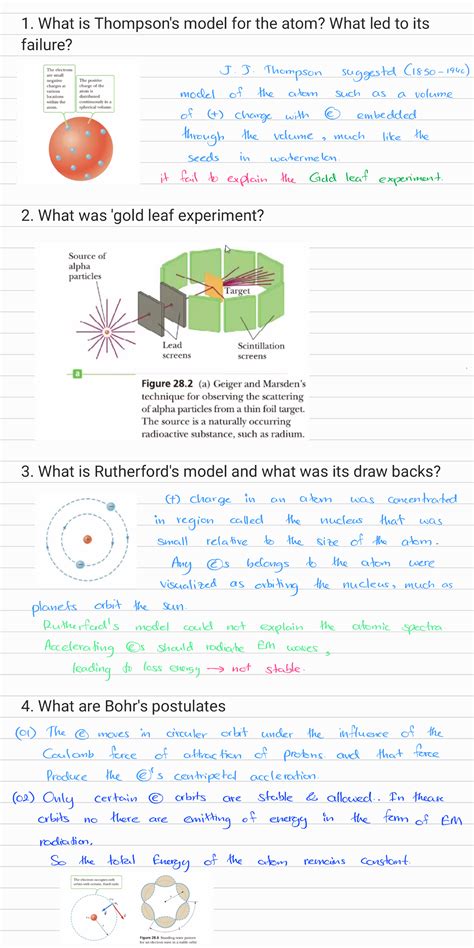 1. What is Thompson's model for the atom? What led to its
failure?
The electrons
are small
negative
charges at
various
locations
within the
atom.
The positive
charge of the
atom is
distributed
continuously in a
spherical volume.
J. J. Thompson suggestd (1850-1940)
model of the atom such as a volume
of (+) charge with e embedded
through the volume, much like the
seeds in watermelon.
it fail to explain the Gold leaf experiment.
2. What was 'gold leaf experiment?
Source of
alpha
particles
Target
Lead
screens
Scintillation
screens
a
Figure 28.2 (a) Geiger and Marsden's
technique for observing the scattering
of alpha particles from a thin foil target.
The source is a naturally occurring
radioactive substance, such as radium.
3. What is Rutherford's model and what was its draw backs?
(+) charge in an atom was concentrated
in region called the nucleus that was
small relative to the size of the atom.
Any es belongs to the atom were
visualized as orbiting the nucleus, much as
planets orbit the sun.
Rutherford's model could not explain the atomic spectra
Accelerating es should radiate EM waves,
leading to loss energy → not stable.
4. What are Bohr's postulates
(01) The e moves in circuler orbit under the influence of the
Coulomb force of attraction of protons and that force
Produce the e's centripetal acceleration.
(02) Only certain e orbits are stable & allowed.. In these
orbits no there are emitting of energy in the form of EM
radiation.
So the total Energy of the atom remains constant.
Figure 28.6 Standing wave pattern
for an electron wave in a stable orbit